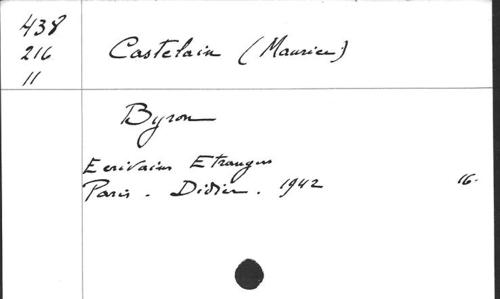 438
216
11
Castelain (Maurice)
Byron
Ecrivains Etrangers
Paris. Didier. 1942 16.